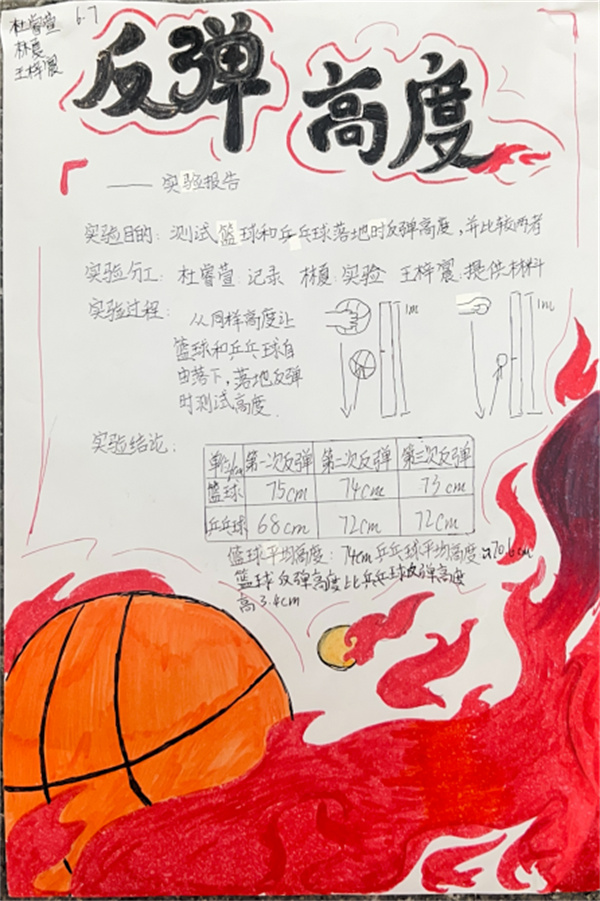 杜睿萱 6.7
林夏
王梓宸
反弹
高度
—— 实验报告
实验目的: 测试篮球和乒乓球落地时反弹高度,并比较两者
实验分工: 杜睿萱 记录 林夏 实验 王梓宸 提供材料
实验过程: 从同样高度让
篮球和乒乓球自
由落下,落地反弹
时测试高度.
1m
1m
实验结论:
单位/cm 第一次反弹 第二次反弹 第三次反弹
篮球 75cm 74cm 73cm
乒乓球 68cm 72cm 72cm
篮球平均高度: 74cm 乒乓球平均高度≈70.6cm
篮球反弹高度比乒乓球反弹高度
高3.4cm